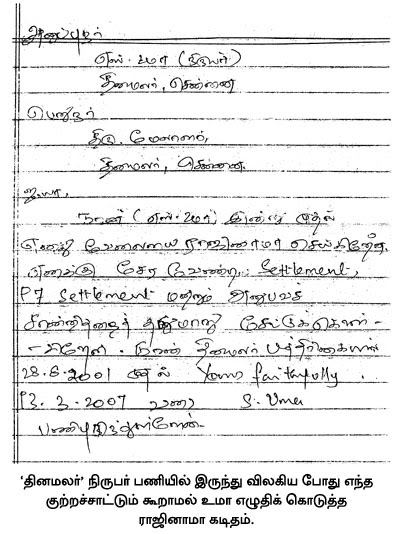 அனுப்புநர்
எஸ். உமா (நிருபர்)
தினமலர், சென்னை
பெறுநர்
திரு. மேலாளர்,
தினமலர், சென்னை.
ஐயா,
நான் (எஸ். உமா) இன்று முதல்
எனது வேலையை ராஜினாமா செய்கிறேன்.
எனக்கு சேர வேண்டிய Settlement,
PF Settlement மற்றும் அனுபவச்
சான்றிதழைத் தருமாறு கேட்டுக்கொள்-
-கிறேன். நான் தினமலர் பத்திரிகையில்
28.6.2001 முதல் Yours faithfully
13.3.2007 வரை S. Uma
பணிபுரிந்துள்ளேன்.
'தினமலர்' நிருபர் பணியில் இருந்து விலகிய போது எந்த
குற்றச்சாட்டும் கூறாமல் உமா எழுதிக் கொடுத்த
ராஜினாமா கடிதம்.